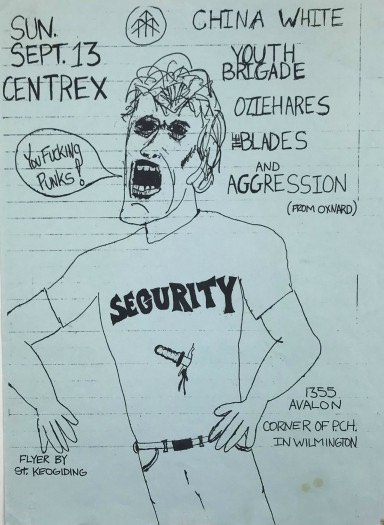 SUN.
SEPT. 13
CENTREX
CHINA WHITE
YOUTH
BRIGADE
OZIEHARES
THE BLADES
AND
AGGRESSION
(FROM OXNARD)
You Fucking
Punks!
SECURITY
1355
AVALON
CORNER OF P.C.H.
IN WILMINGTON
FLYER BY
St. KEOGIDING